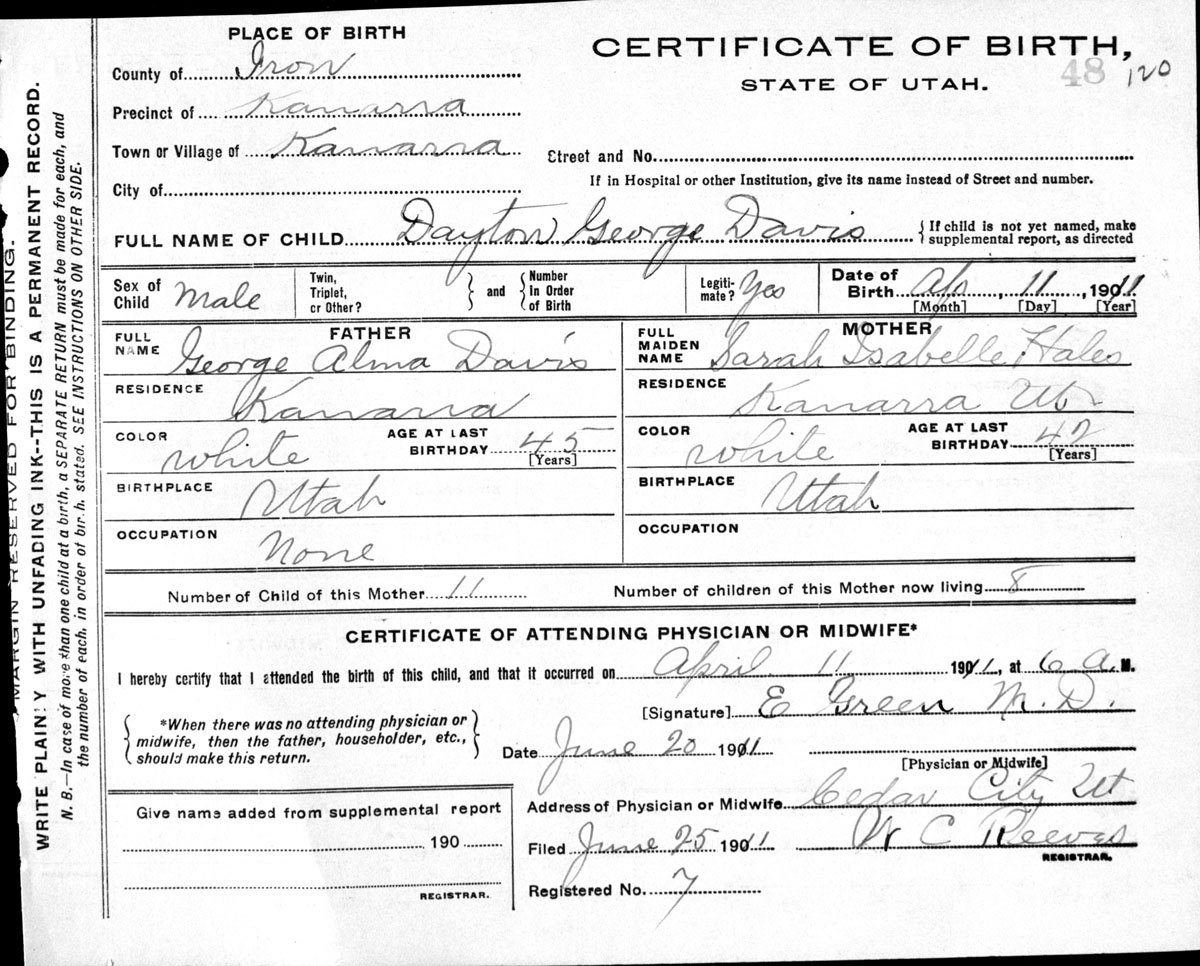 PLACE OF BIRTH
CERTIFICATE OF BIRTH,
STATE OF UTAH.
48 120
County of Iron
Precinct of Kanarra
Town or Village of Kanarra
Street and No.
City of
If in Hospital or other Institution, give its name instead of Street and number.
FULL NAME OF CHILD Dayton George Davis
{If child is not yet named, make
supplemental report, as directed
Sex of
Child Male
Twin,
Triplet,
or Other?
} and {
Number
In Order
of Birth
Legiti-
mate? Yes
Date of
Birth Apr, 11, 1911
[Month] [Day] [Year]
FATHER
FULL
NAME George Alma Davis
RESIDENCE
Kanarra
COLOR
White
AGE AT LAST
BIRTHDAY 45
[Years]
BIRTHPLACE
Utah
OCCUPATION
None
MOTHER
FULL
MAIDEN
NAME Sarah Isabelle Hales
RESIDENCE
Kanarra Ut
COLOR
White
AGE AT LAST
BIRTHDAY 42
[Years]
BIRTHPLACE
Utah
OCCUPATION
Number of Child of this Mother 11
Number of children of this Mother now living 8
CERTIFICATE OF ATTENDING PHYSICIAN OR MIDWIFE*
I hereby certify that I attended the birth of this child, and that it occurred on April 11 1911, at 6 A.M.
[Signature] E Green M.D.
{*When there was no attending physician or
midwife, then the father, householder, etc.,
should make this return.}
Date June 20 1911
[Physician or Midwife]
Address of Physician or Midwife Cedar City Ut
Filed June 25 1911 W C Reeves
REGISTRAR.
Registered No. 7
Give name added from supplemental report
190
REGISTRAR.
MARGIN RESERVED FOR BINDING.
WRITE PLAINLY WITH UNFADING INK--THIS IS A PERMANENT RECORD.
N. B.—In case of more than one child at a birth, a SEPARATE RETURN must be made for each, and
the number of each, in order of birth, stated. SEE INSTRUCTIONS ON OTHER SIDE.